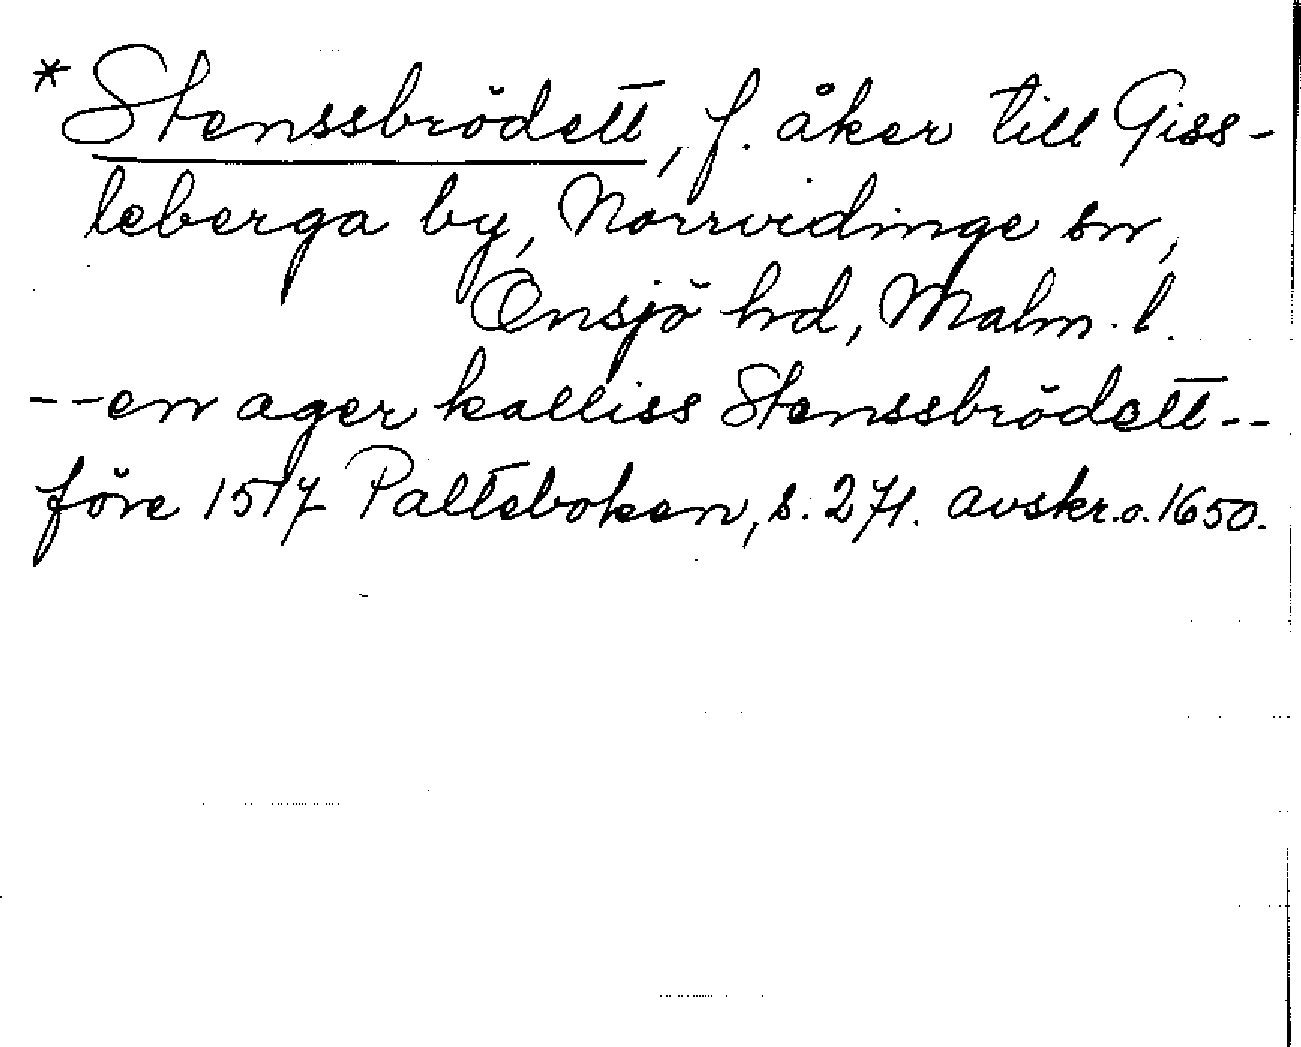 * Stenssbrödett, f. åker till Giss-
leberga by, Norrvidinge sn,
Onsjö hd, Malm. l.
--en ager kalliss Stenssbrödett--
före 1517 Palteboken, s. 271. avskr.o.1650.